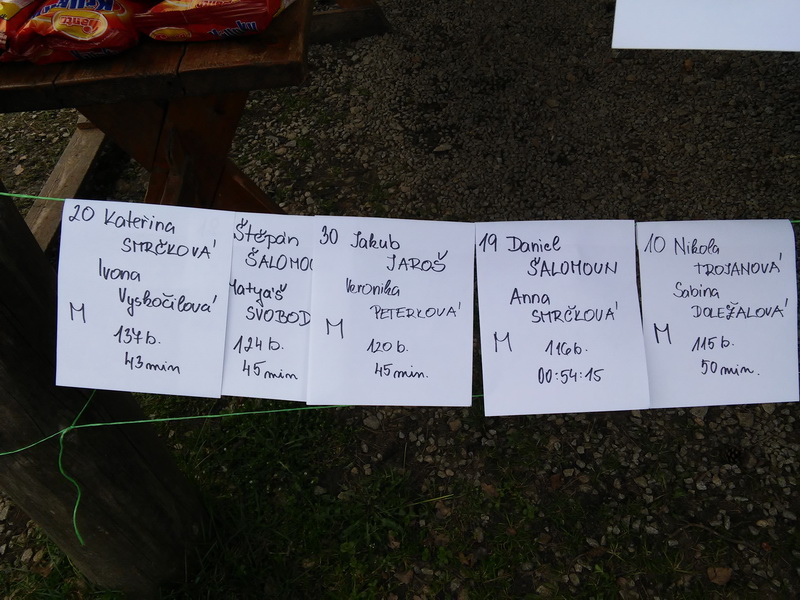 20 Kateřina
SMRČKOVÁ
Ivona
Vyskočilová
M
137b.
43min
Štěpán
ŠALOMOU
Matyáš
SVOBOD
124b.
45min
30 Jakub
JAROŠ
Veronika
PETERKOVÁ
M
120b.
45min.
19 Daniel
ŠALOMOUN
Anna
SMRČKOVÁ
M
116b.
00:54:15
10 Nikola
TROJANOVÁ
Sabina
DOLEŽALOVÁ
M
115b.
50min.